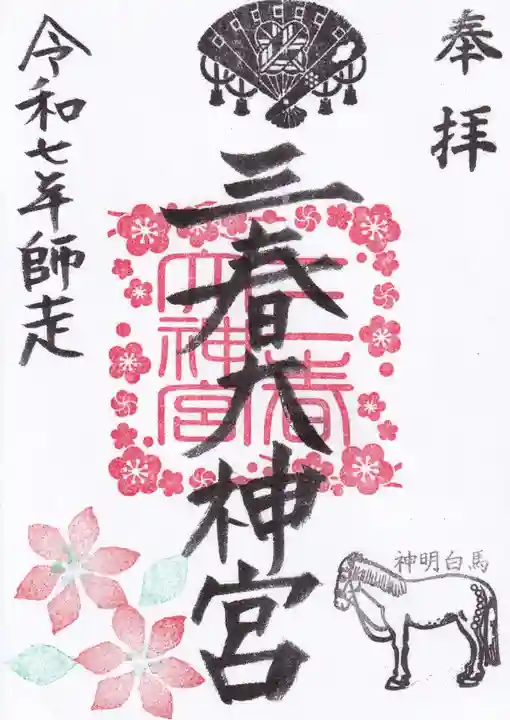 奉拝
三春大神宮
三春
大神宮
令和七年師走
神明白馬